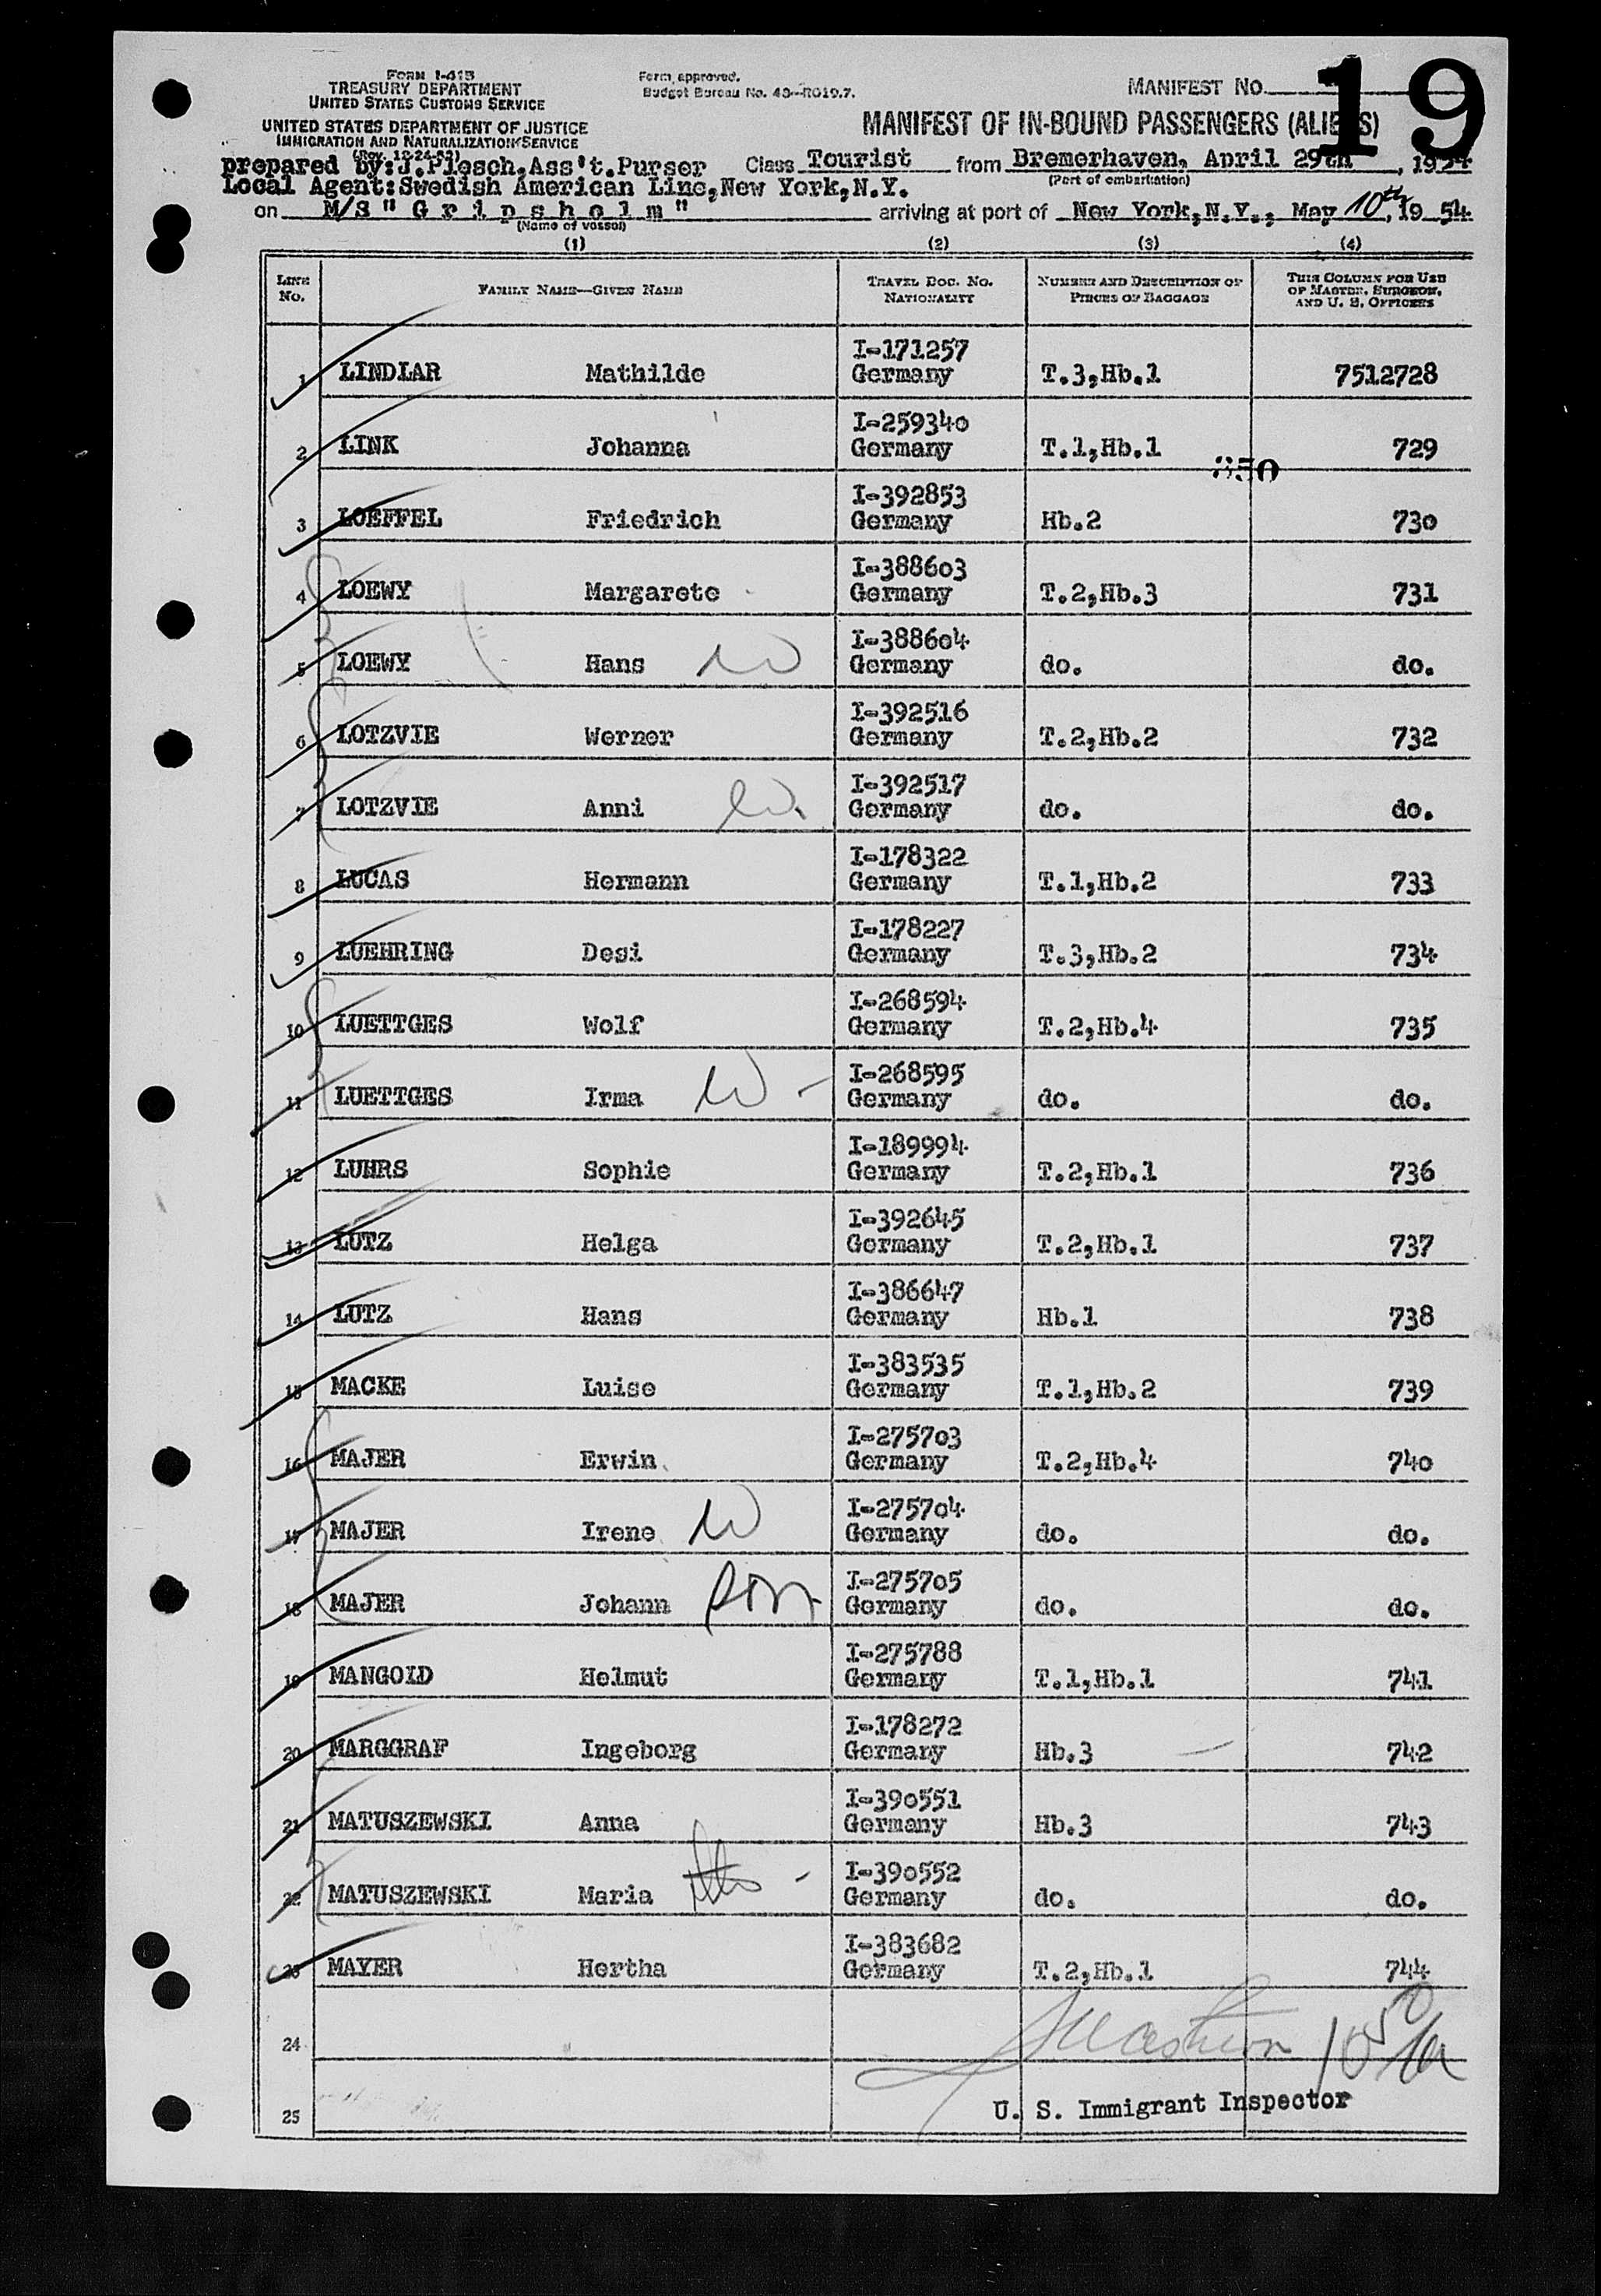 FORM I-415
TREASURY DEPARTMENT
UNITED STATES CUSTOMS SERVICE
UNITED STATES DEPARTMENT OF JUSTICE
IMMIGRATION AND NATURALIZATION SERVICE
(Rev. 12-24-52)
Form approved.
Budget Bureau No. 43-R019.7.
MANIFEST NO. 19
MANIFEST OF IN-BOUND PASSENGERS (ALIENS)
prepared by:J.Plesch,Ass't.Purser Class Tourist from Bremerhaven, April 29th, 1954
(Port of embarkation)
Local Agent:Swedish American Line,New York,N.Y.
on M/S "Gripsholm" arriving at port of New York,N.Y., May 10th, 1954
(Name of vessel)
(1) (2) (3) (4)
LINE NO. FAMILY NAME—GIVEN NAME TRAVEL DOC. NO. NATIONALITY NUMBER AND DESCRIPTION OF PIECES OF BAGGAGE THIS COLUMN FOR USE OF MASTER, SURGEON, AND U. S. OFFICERS
I-171257
1 LINDLAR Mathilde Germany T.3,Hb.1 7512728
I-259340
2 LINK Johanna Germany T.1,Hb.1 729
350
I-392853
3 LOEFFEL Friedrich Germany Hb.2 730
I-388603
4 LOEWY Margarete Germany T.2,Hb.3 731
I-388604
5 LOEWY Hans W Germany do. do.
I-392516
6 LOTZVIE Werner Germany T.2,Hb.2 732
I-392517
7 LOTZVIE Anni W. Germany do. do.
I-178322
8 LUCAS Hermann Germany T.1,Hb.2 733
I-178227
9 LUEHRING Desi Germany T.3,Hb.2 734
I-268594
10 LUETTGES Wolf Germany T.2,Hb.4 735
I-268595
11 LUETTGES Irma W - Germany do. do.
I-189994
12 LUHRS Sophie Germany T.2,Hb.1 736
I-392645
13 LUTZ Helga Germany T.2,Hb.1 737
I-386647
14 LUTZ Hans Germany Hb.1 738
I-383535
15 MACKE Luise Germany T.1,Hb.2 739
I-275703
16 MAJER Erwin Germany T.2,Hb.4 740
I-275704
17 MAJER Irene W Germany do. do.
I-275705
18 MAJER Johann son Germany do. do.
I-275788
19 MANGOLD Helmut Germany T.1,Hb.1 741
I-178272
20 MARGGRAF Ingeborg Germany Hb.3 742
I-390551
21 MATUSZEWSKI Anna Germany Hb.3 743
I-390552
22 MATUSZEWSKI Maria Germany do. do.
I-383682
23 MAYER Hertha Germany T.2,Hb.1 744
24
25
U. S. Immigrant Inspector